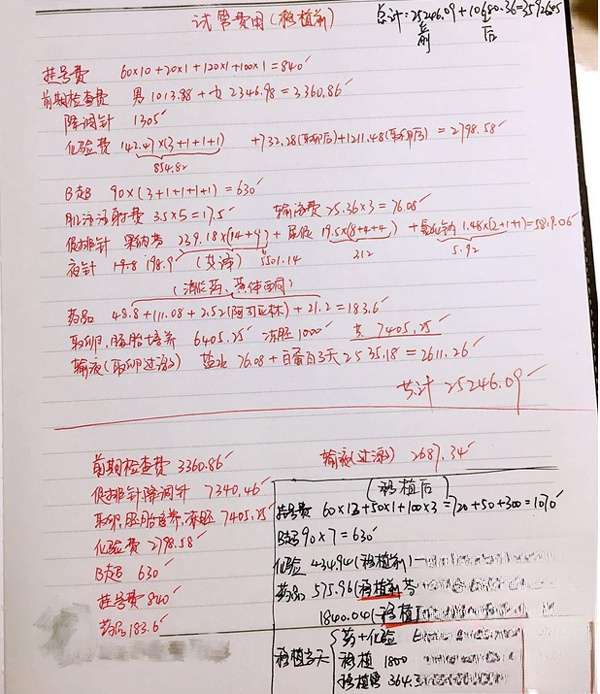 试管费用(移植前)
总计:25246.09+10680.36=35926.45
前 后
挂号费 60×10+20×1+120×1+100×1=840
前期检查费 男1013.88+女2346.98=3360.86
降调针 1305
化验费 142.47×(3+1+1+1) +732.28(取卵后)+1211.48(取卵后)=2798.58
854.82
B超 90×(3+1+1+1+1)=630
肌注注射费 3.5×5=17.5 输液费 25.36×3=76.08
促排针 果纳芬 239.18×(14+9)+尿促 19.5×(8+4+4) +氯化钠 1.48×(2+1+1)=5819.06
夜针 198.9 (艾泽) 5501.14 312 5.92
(消炎药、黄体酮)
药品 48.8+111.08+2.52(阿司匹林)+21.2=183.6
取卵,胚胎培养 6405.25 冻胚1000 共 7405.25
输液(取卵过激) 盐水 76.08+白蛋白3天2535.18=2611.26
共计 25246.09
前期检查费 3360.86 输液(过激) 2687.34
促排针降调针 7340.46
取卵,胚胎培养,冻胚 7405.25
化验费 2798.58
B超 630
挂号费 840
药品 183.6
(移植后)
挂号费 60×12+50×1+100×3=720+50+300=1070
B超 90×7=630
化验 434.94(移植前)
药品 575.96(移植前)
1840.04(移植
移植当天 药+化验
移植 1800
移植 364.3